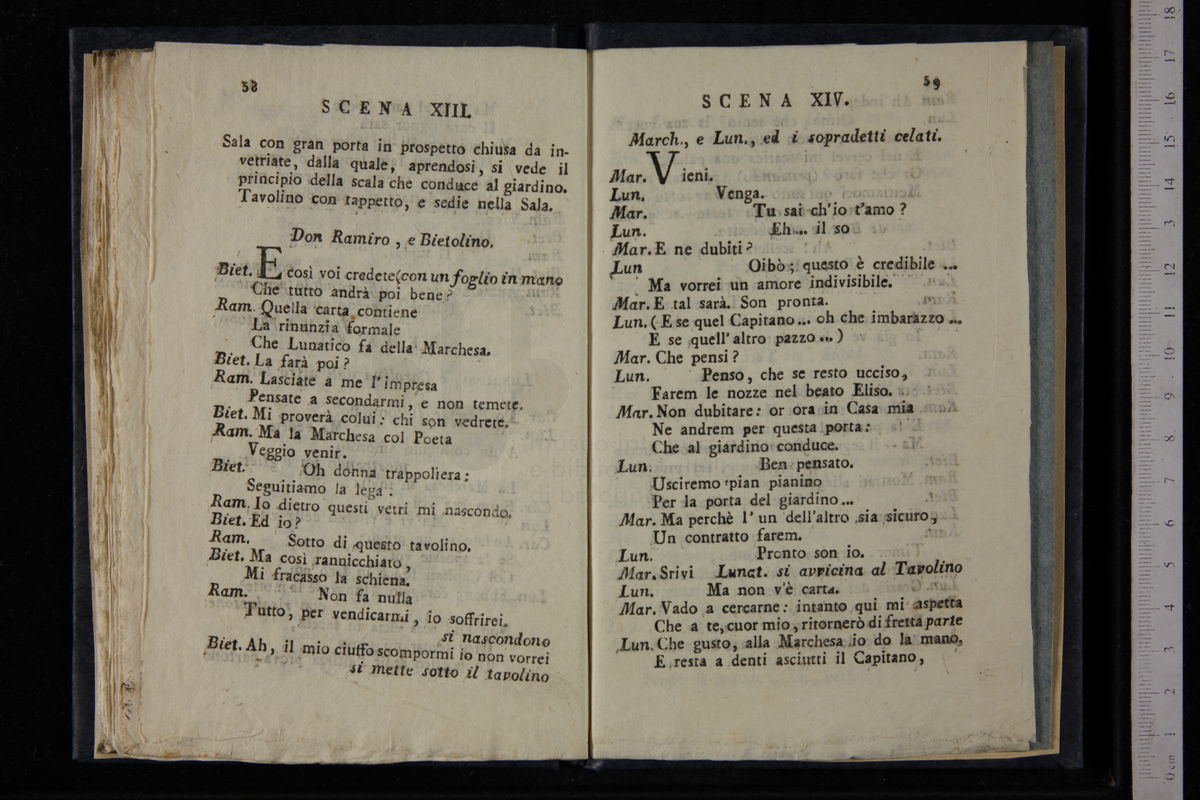 58
SCENA XIII.
Sala con gran porta in prospetto chiusa da in-
vetriate, dalla quale, aprendosi, si vede il
principio della scala che conduce al giardino.
Tavolino con tappetto, e sedie nella Sala.
Don Ramiro, e Bietolino.
Biet. E così voi credete (con un foglio in mano
Che tutto andrà poi bene?
Ram. Quella carta contiene
La rinunzia formale
Che Lunatico fa della Marchesa.
Biet. La farà poi?
Ram. Lasciate a me l'impresa
Pensate a secondarmi, e non temete.
Biet. Mi proverà colui: chi son vedrete.
Ram. Ma la Marchesa col Poeta
Veggio venir.
Biet. Oh donna trappoliera:
Seguitiamo la lega.
Ram. Io dietro questi vetri mi nascondo.
Biet. Ed io?
Ram. Sotto di questo tavolino.
Biet. Ma così rannicchiato,
Mi fracasso la schiena.
Ram. Non fa nulla
Tutto, per vendicarmi, io soffrirei.
si nascondono
Biet. Ah, il mio ciuffo scompormi io non vorrei
si mette sotto il tavolino
59
SCENA XIV.
March., e Lun., ed i sopradetti celati.
Mar. Vieni.
Lun. Venga.
Mar. Tu sai ch'io t'amo?
Lun. Eh... il so
Mar. E ne dubiti?
Lun Oibò; questo è credibile ...
Ma vorrei un amore indivisibile.
Mar. E tal sarà. Son pronta.
Lun. (E se quel Capitano... oh che imbarazzo ...
E se quell'altro pazzo ...)
Mar. Che pensi?
Lun. Penso, che se resto ucciso,
Farem le nozze nel beato Eliso.
Mar. Non dubitare: or ora in Casa mia
Ne andrem per questa porta:
Che al giardino conduce.
Lun. Ben pensato.
Usciremo pian pianino
Per la porta del giardino...
Mar. Ma perchè l'un dell'altro sia sicuro,
Un contratto farem.
Lun. Pronto son io.
Mar. Srivi Lunat. si avvicina al Tavolino
Lun. Ma non v'è carta.
Mar. Vado a cercarne: intanto qui mi aspetta
Che a te, cuor mio, ritornerò di fretta parte
Lun. Che gusto, alla Marchesa io do la mano,
E resta a denti asciutti il Capitano,